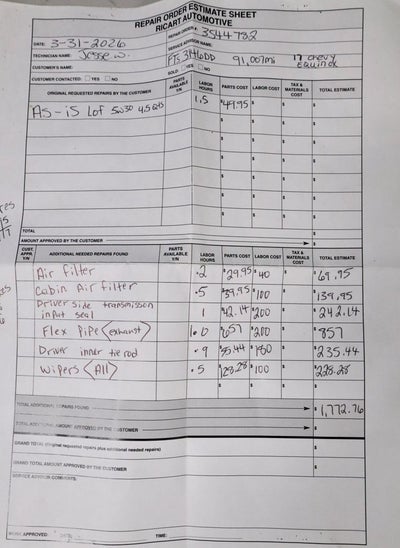 REPAIR ORDER ESTIMATE SHEET
RICART AUTOMOTIVE
DATE: 3-31-2026 REPAIR ORDER #: 3544732
TECHNICIAN NAME: Jesse W. SERVICE ADVISOR NAME:
CUSTOMER'S NAME: PTS3146DD 91,007mi 17 Chevy Equinox
CUSTOMER CONTACTED: YES NO SOLD: YES NO
ORIGINAL REQUESTED REPAIRS BY THE CUSTOMER PARTS AVAILABLE Y/N LABOR HOURS PARTS COST LABOR COST TAX & MATERIALS COST TOTAL ESTIMATE
AS-iS Lof 5w30 4.5 qts 1.5 $49.95 $ $ $
TOTAL
AMOUNT APPROVED BY THE CUSTOMER $
CUST. APPR. Y/N ADDITIONAL NEEDED REPAIRS FOUND PARTS AVAILABLE Y/N LABOR HOURS PARTS COST LABOR COST TAX & MATERIALS COST TOTAL ESTIMATE
Air filter .2 $29.95 $40 $ $69.95
Cabin Air filter .5 $39.95 $100 $ $139.95
Driver side transmission input seal 1 $42.14 $200 $ $242.14
Flex Pipe (exhaust) 1.0 $657 $200 $ $857
Driver inner tie rod .9 $55.44 $180 $ $235.44
Wipers (All) .5 $128.28 $100 $ $228.28
TOTAL ADDITIONAL REPAIRS FOUND $1,772.76
TOTAL ADDITIONAL AMOUNT APPROVED BY THE CUSTOMER $
GRAND TOTAL (original requested repairs plus additional needed repairs) $
GRAND TOTAL AMOUNT APPROVED BY THE CUSTOMER $
SERVICE ADVISOR COMMENTS:
WORK APPROVED: DATE: TIME: